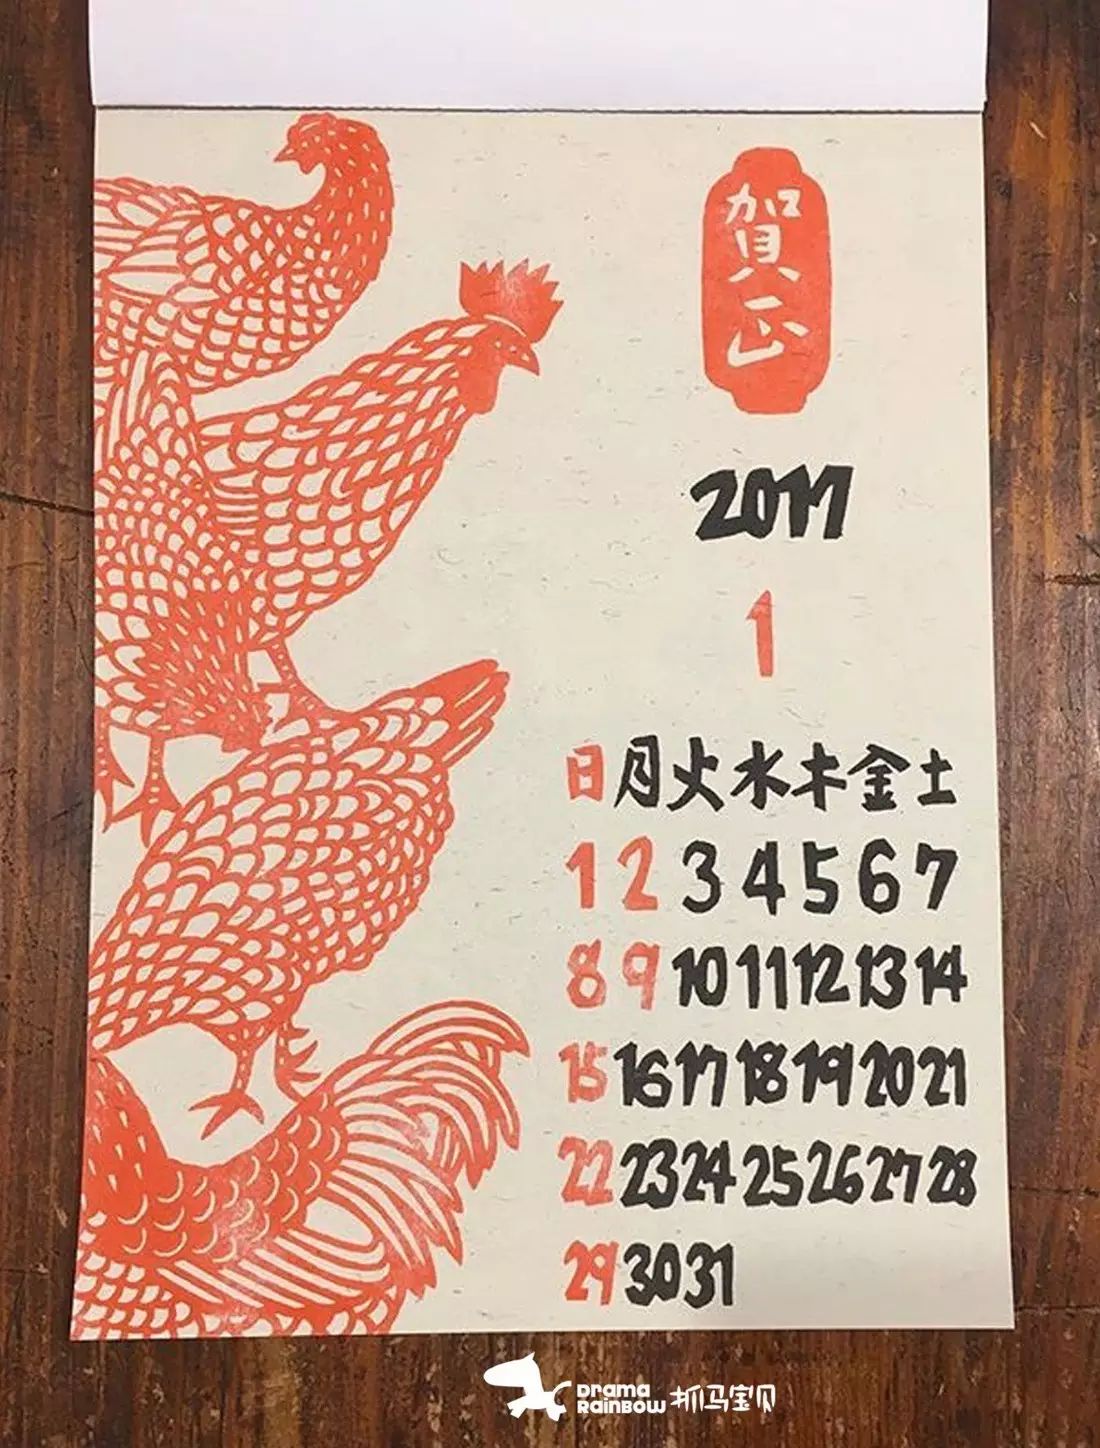 賀正
2017
1
日 月 火 水 木 金 土
1 2 3 4 5 6 7
8 9 10 11 12 13 14
15 16 17 18 19 20 21
22 23 24 25 26 27 28
29 30 31
Drama
Rainbow 抓马宝贝